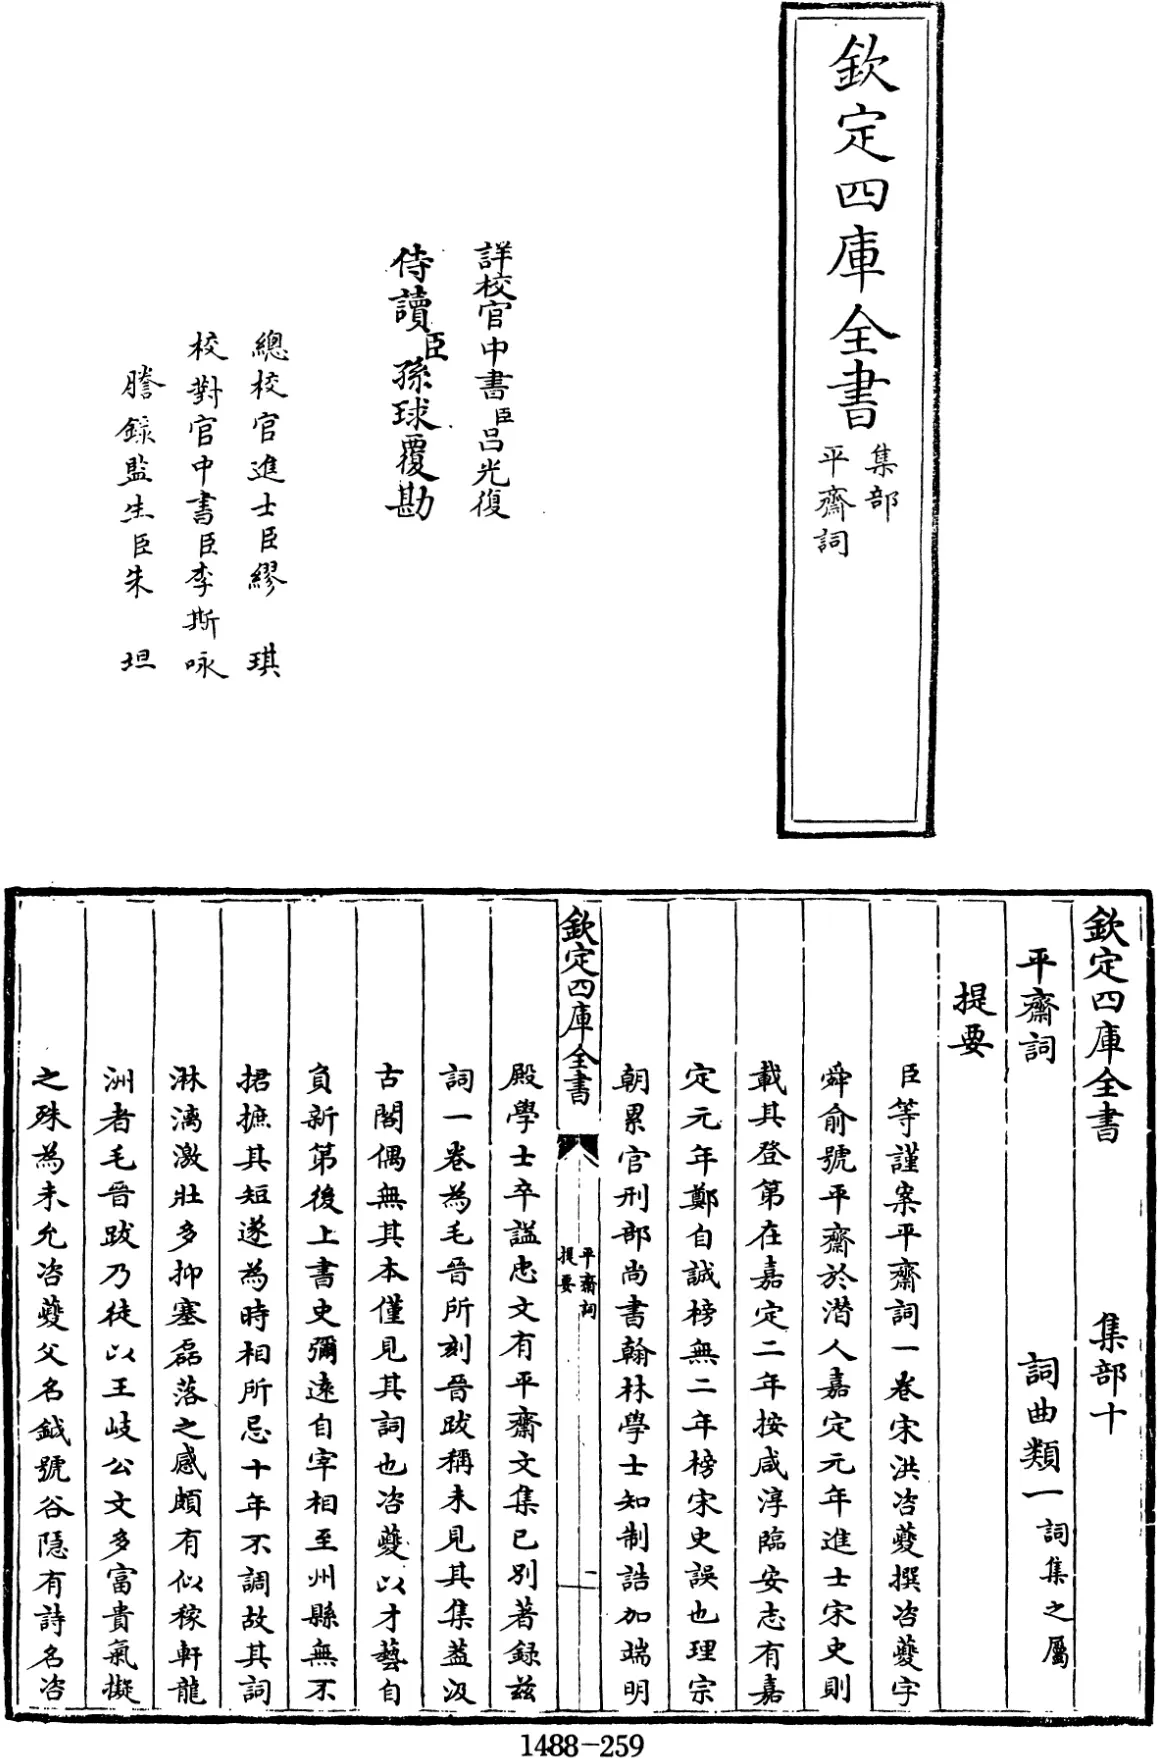 欽定四庫全書
集部
平齋詞
詳校官中書臣呂光復
侍讀臣孫球覆勘
總校官進士臣繆琪
校對官中書臣李斯咏
謄錄監生臣朱坦
欽定四庫全書 集部十
平齋詞 詞曲類一詞集之屬
提要
臣等謹案平齋詞一卷宋洪咨夔撰咨夔字
舜俞號平齋於潛人嘉定元年進士宋史則
載其登第在嘉定二年按咸淳臨安志有嘉
定元年鄭自誠榜無二年榜宋史誤也理宗
朝累官刑部尚書翰林學士知制誥加端明
欽定四庫全書
平齋詞
提要
一
殿學士卒諡忠文有平齋文集已別著録兹
詞一卷為毛晉所刻晉跋稱未見其集葢汲
古閣偶無其本僅見其詞也咨夔以才藝自
負新第後上書史彌遠自宰相至州縣無不
捃摭其短遂為時相所忌十年不調故其詞
淋漓激壯多抑塞磊落之感頗有似稼軒龍
洲者毛晉跋乃徒以王岐公文多富貴氣擬
之殊為未允咨夔父名鉞號谷隱有詩名咨
1488-259